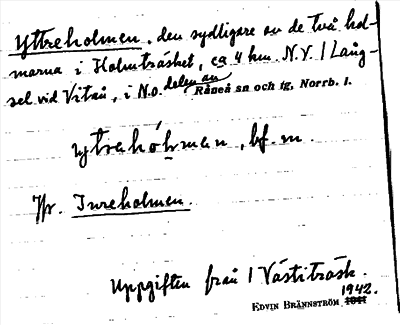 Yttreholmen, den sydligare av de två hol-
marna i Holmträsket, ca 4 km. N.V. / Lång-
sel vid Vitån, i N.o. delen av
Råneå sn och tg, Norrb. l.
ytrehólmen, bf. m.
Jfr. Inreholmen.
Uppgiften från / Västiträsk.
1942.
EDVIN BRÄNNSTRÖM 1941